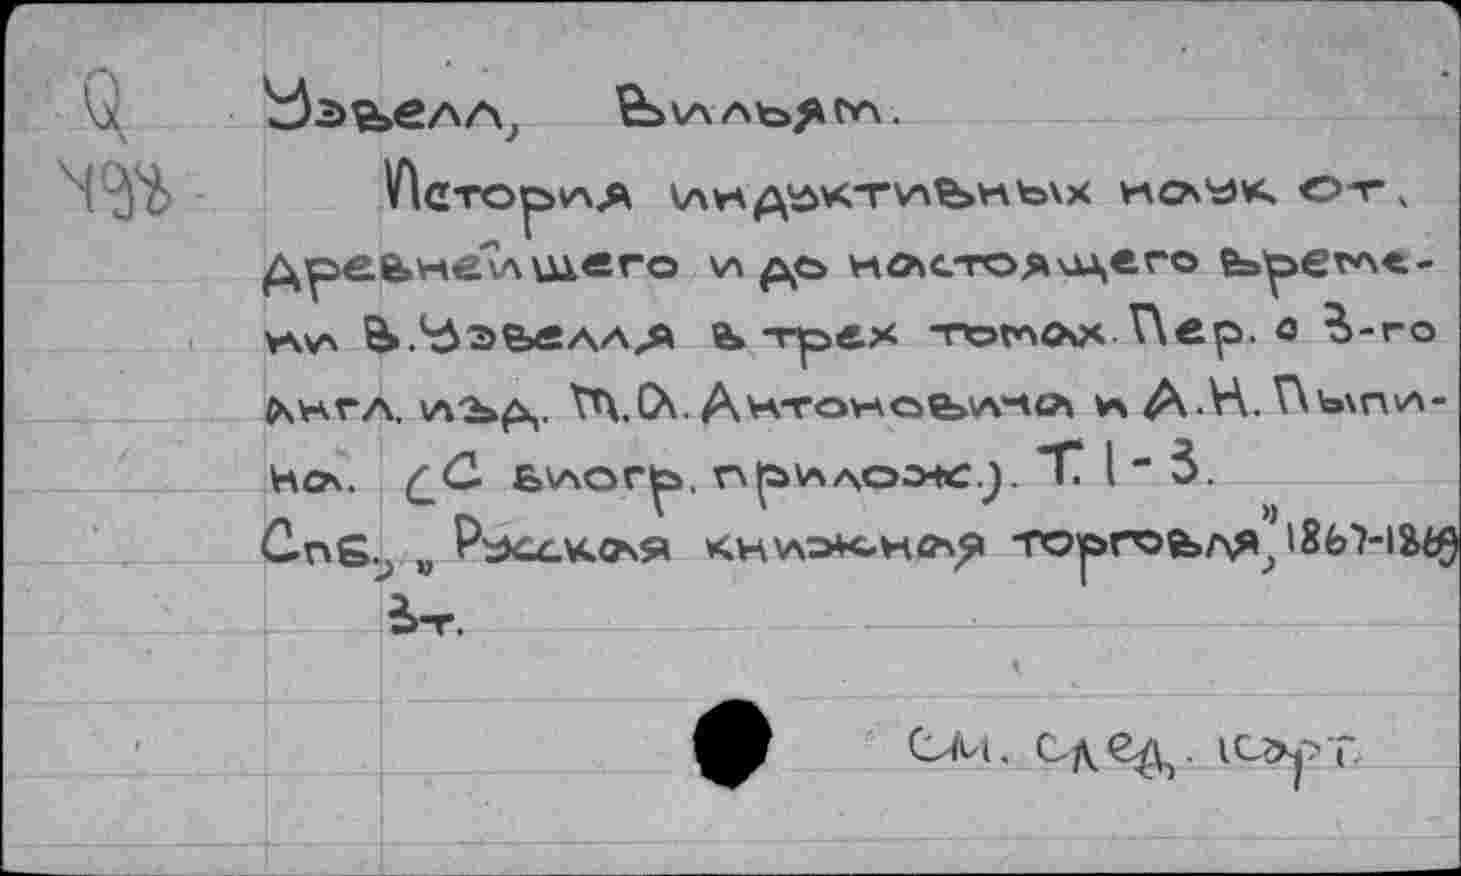 Q
Уэвелл, Вильям.
Ч93
История индуктивных наук от
древнейшего и до настоящего време-
ни В.Уэвелла в трех томах. Пер. с 3-го
англ. изд. М.А. Антоновича и А.Н. Пыпи-
на. (С биогр. прилож.). Т. 1-3.
СпБ., „Русская книжная торговля", 1867-1869
3т.
См. след. карт.